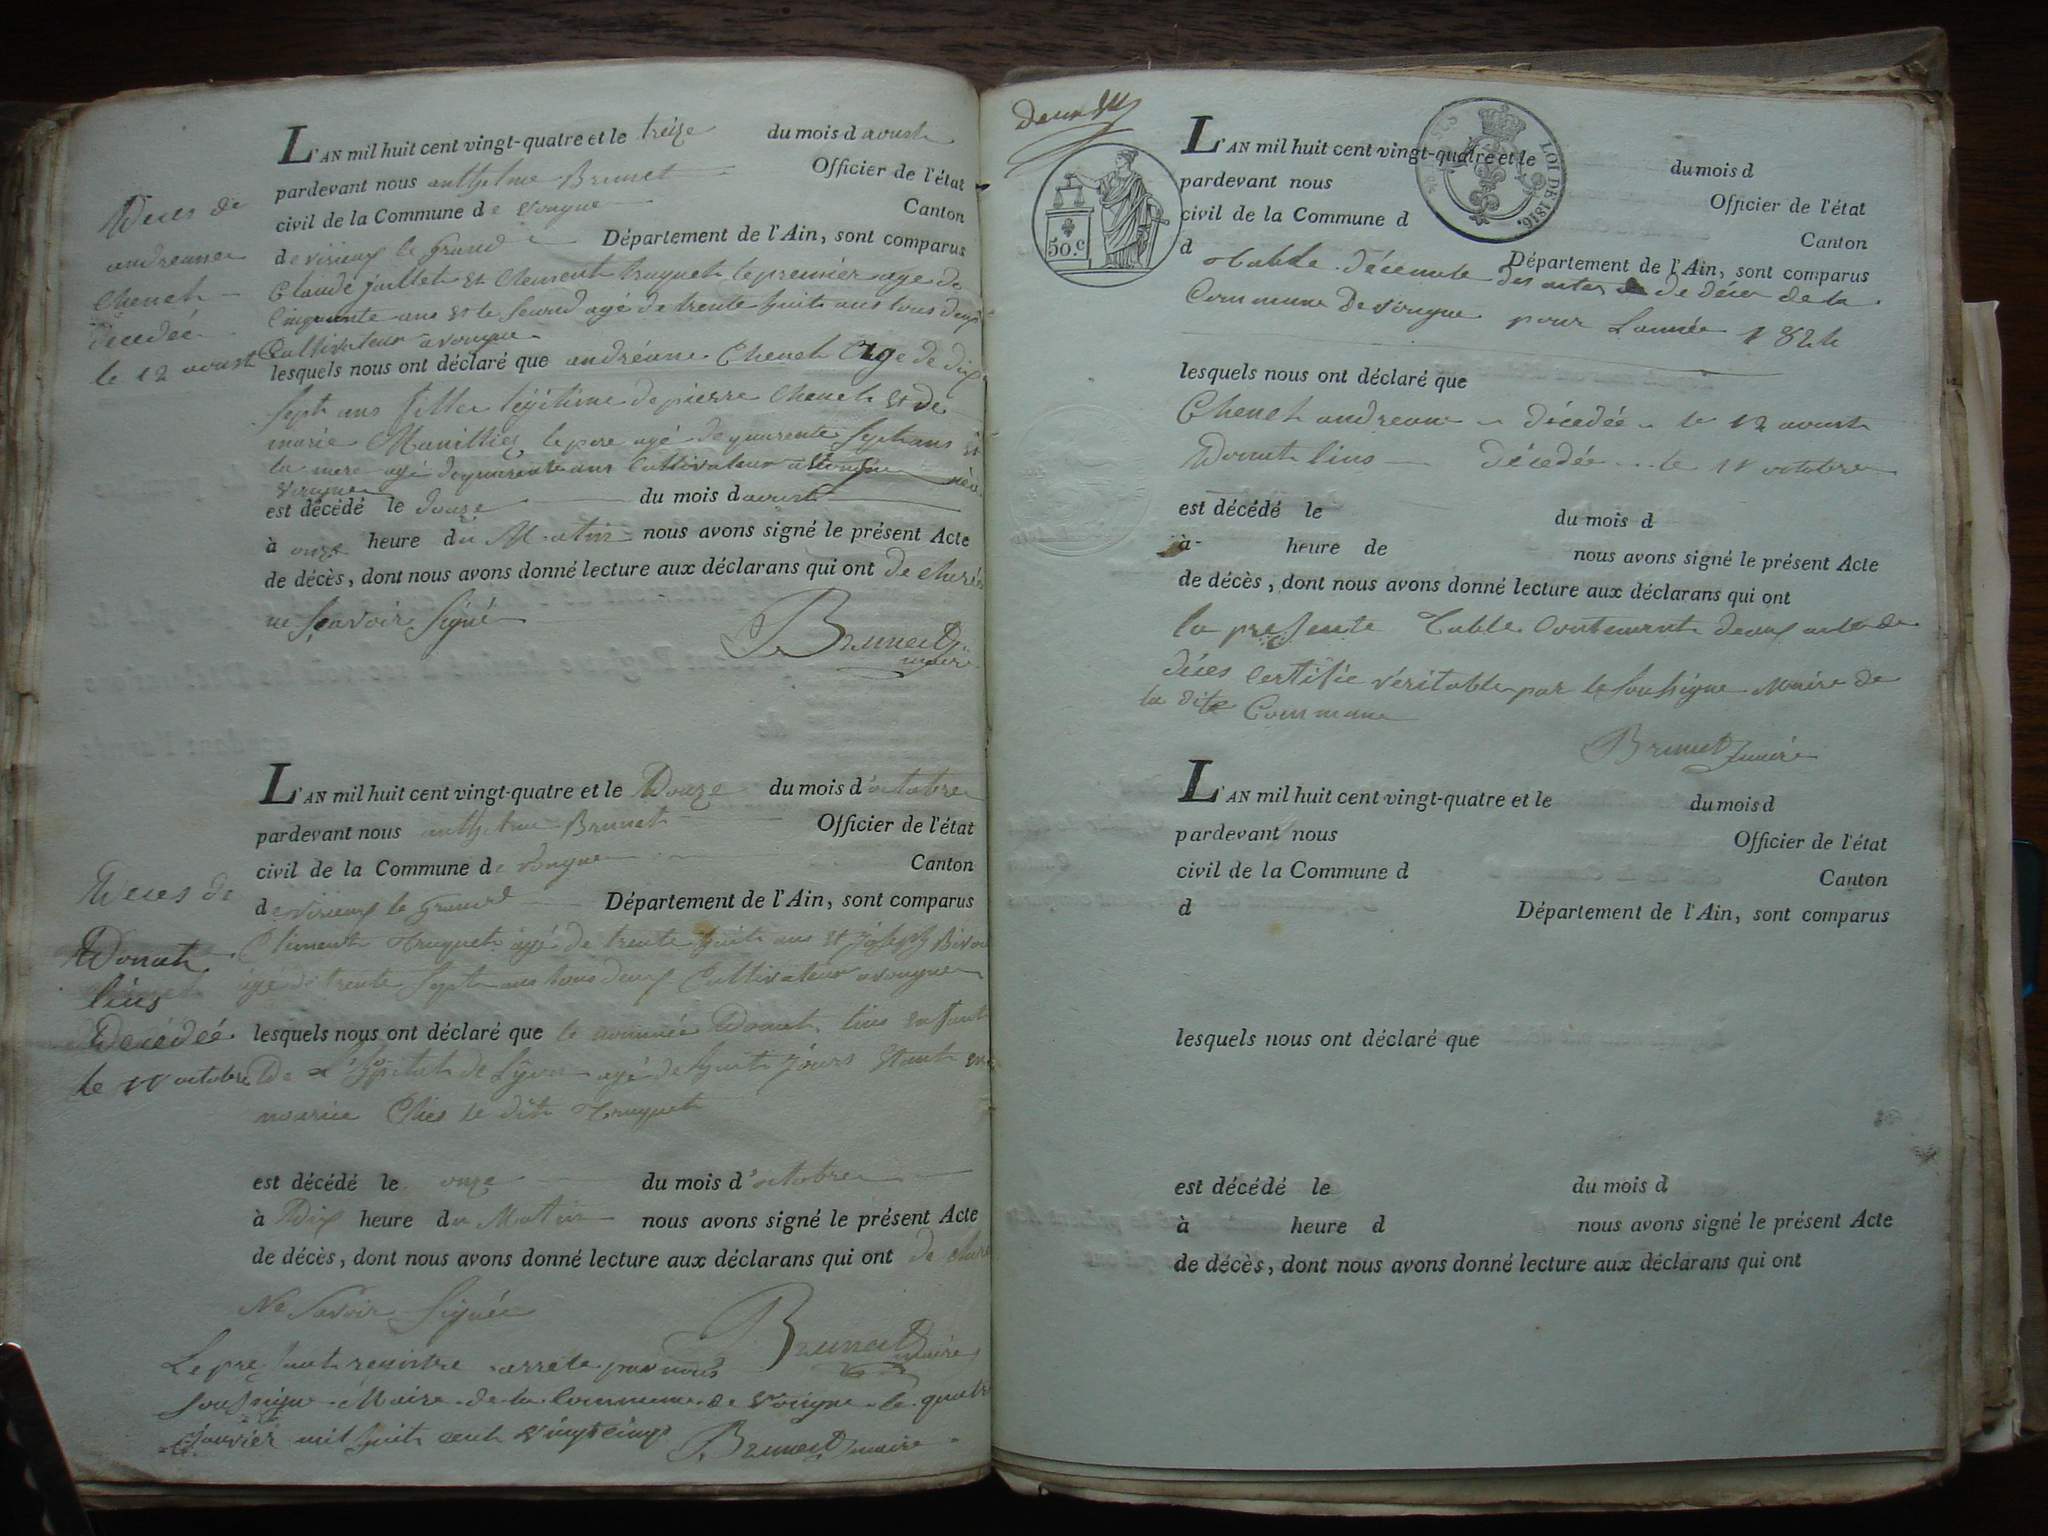 L'AN mil huit cent vingt-quatre et le treize du mois d aoust
pardevant nous anthelme Brunet Officier de l'état
civil de la Commune de vongne Canton
de virieux le Grand Département de l'Ain, sont comparus
Claude juillet et Clement truquet le premier age de
Cinquante ans et le second agé de trente huit ans tous deux
Cultivateur a vongne
lesquels nous ont déclaré que andréanne Chenet Age de dix
sept ans fille légitime de pierre Chenet et de
marie le pere agé de quarente sept ans et
la mere agé de quarente ans Cultivateur a vongne née
vongne
est décédé le douze du mois d aoust
à onze heure du Matin nous avons signé le présent Acte
de décès, dont nous avons donné lecture aux déclarans qui ont de cluré
ne scavoir signé
Brunet
maire
Deces de
andreanne
Chenet
decedée
le 12 aoust
L'AN mil huit cent vingt-quatre et le Douze du mois d'octobre
pardevant nous anthelme Brunet Officier de l'état
civil de la Commune de vongne Canton
de virieux le Grand Département de l'Ain, sont comparus
Clement Truquet agé de trente huit ans et joseph
age de trente sept ans tous deux Cultivateur a vongne
lesquels nous ont déclaré que le nommée Donat lius enfant
De L'hopital de Lyon agé de huit jours etant en
nourice Ches le dit Truquet
est décédé le onze du mois d'octobre
à Dix heure du Matin nous avons signé le présent Acte
de décès, dont nous avons donné lecture aux déclarans qui ont de cluré
Ne Savoir Signée
Brunet
maire
Deces de
Donat
lius
Decédeé
le 11 octobre
Le present registre arrete par nous
soussigne Maire de la Commune de vongne le quatre
janvier mil huit cent vingt cinq Brunet maire
deux
50.c
LOI DE 1816.
L'AN mil huit cent vingt-quatre et le du mois d
pardevant nous Officier de l'état
civil de la Commune d Canton
d Département de l'Ain, sont comparus
table décennale des actes de déces de la
Commune De vongne pour Lannée 1824
lesquels nous ont déclaré que
Chenet andreane décedée le 12 aoust
Donat lius décedée le 11 octobre
est décédé le du mois d
à heure de nous avons signé le présent Acte
de décès, dont nous avons donné lecture aux déclarans qui ont
la presente Table Contenant deux actes de
déces Certifié véritable par le soussigne Maire de
la dite Commune
Brunet maire
L'AN mil huit cent vingt-quatre et le du mois d
pardevant nous Officier de l'état
civil de la Commune d Canton
d Département de l'Ain, sont comparus
lesquels nous ont déclaré que
est décédé le du mois d
à heure d nous avons signé le présent Acte
de décès, dont nous avons donné lecture aux déclarans qui ont